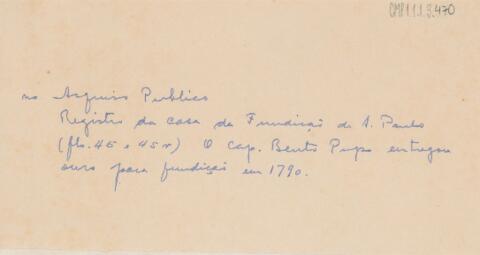 CMP1.1.3.470
no Arquivo Publico
Registro da casa da Fundição de S. Paulo
(fls. 45 e 45v) O cap. Bento Pupo entregou
ouro para fundição em 1790.